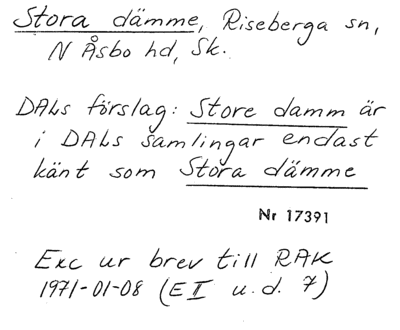 Stora dämme, Riseberga sn,
N Åsbo hd, Sk.
DALs förslag: Store damm är
i DALs samlingar endast
känt som Stora dämme
Nr 17391
Exc ur brev till RAK
1971-01-08 (E II u.d. 7)